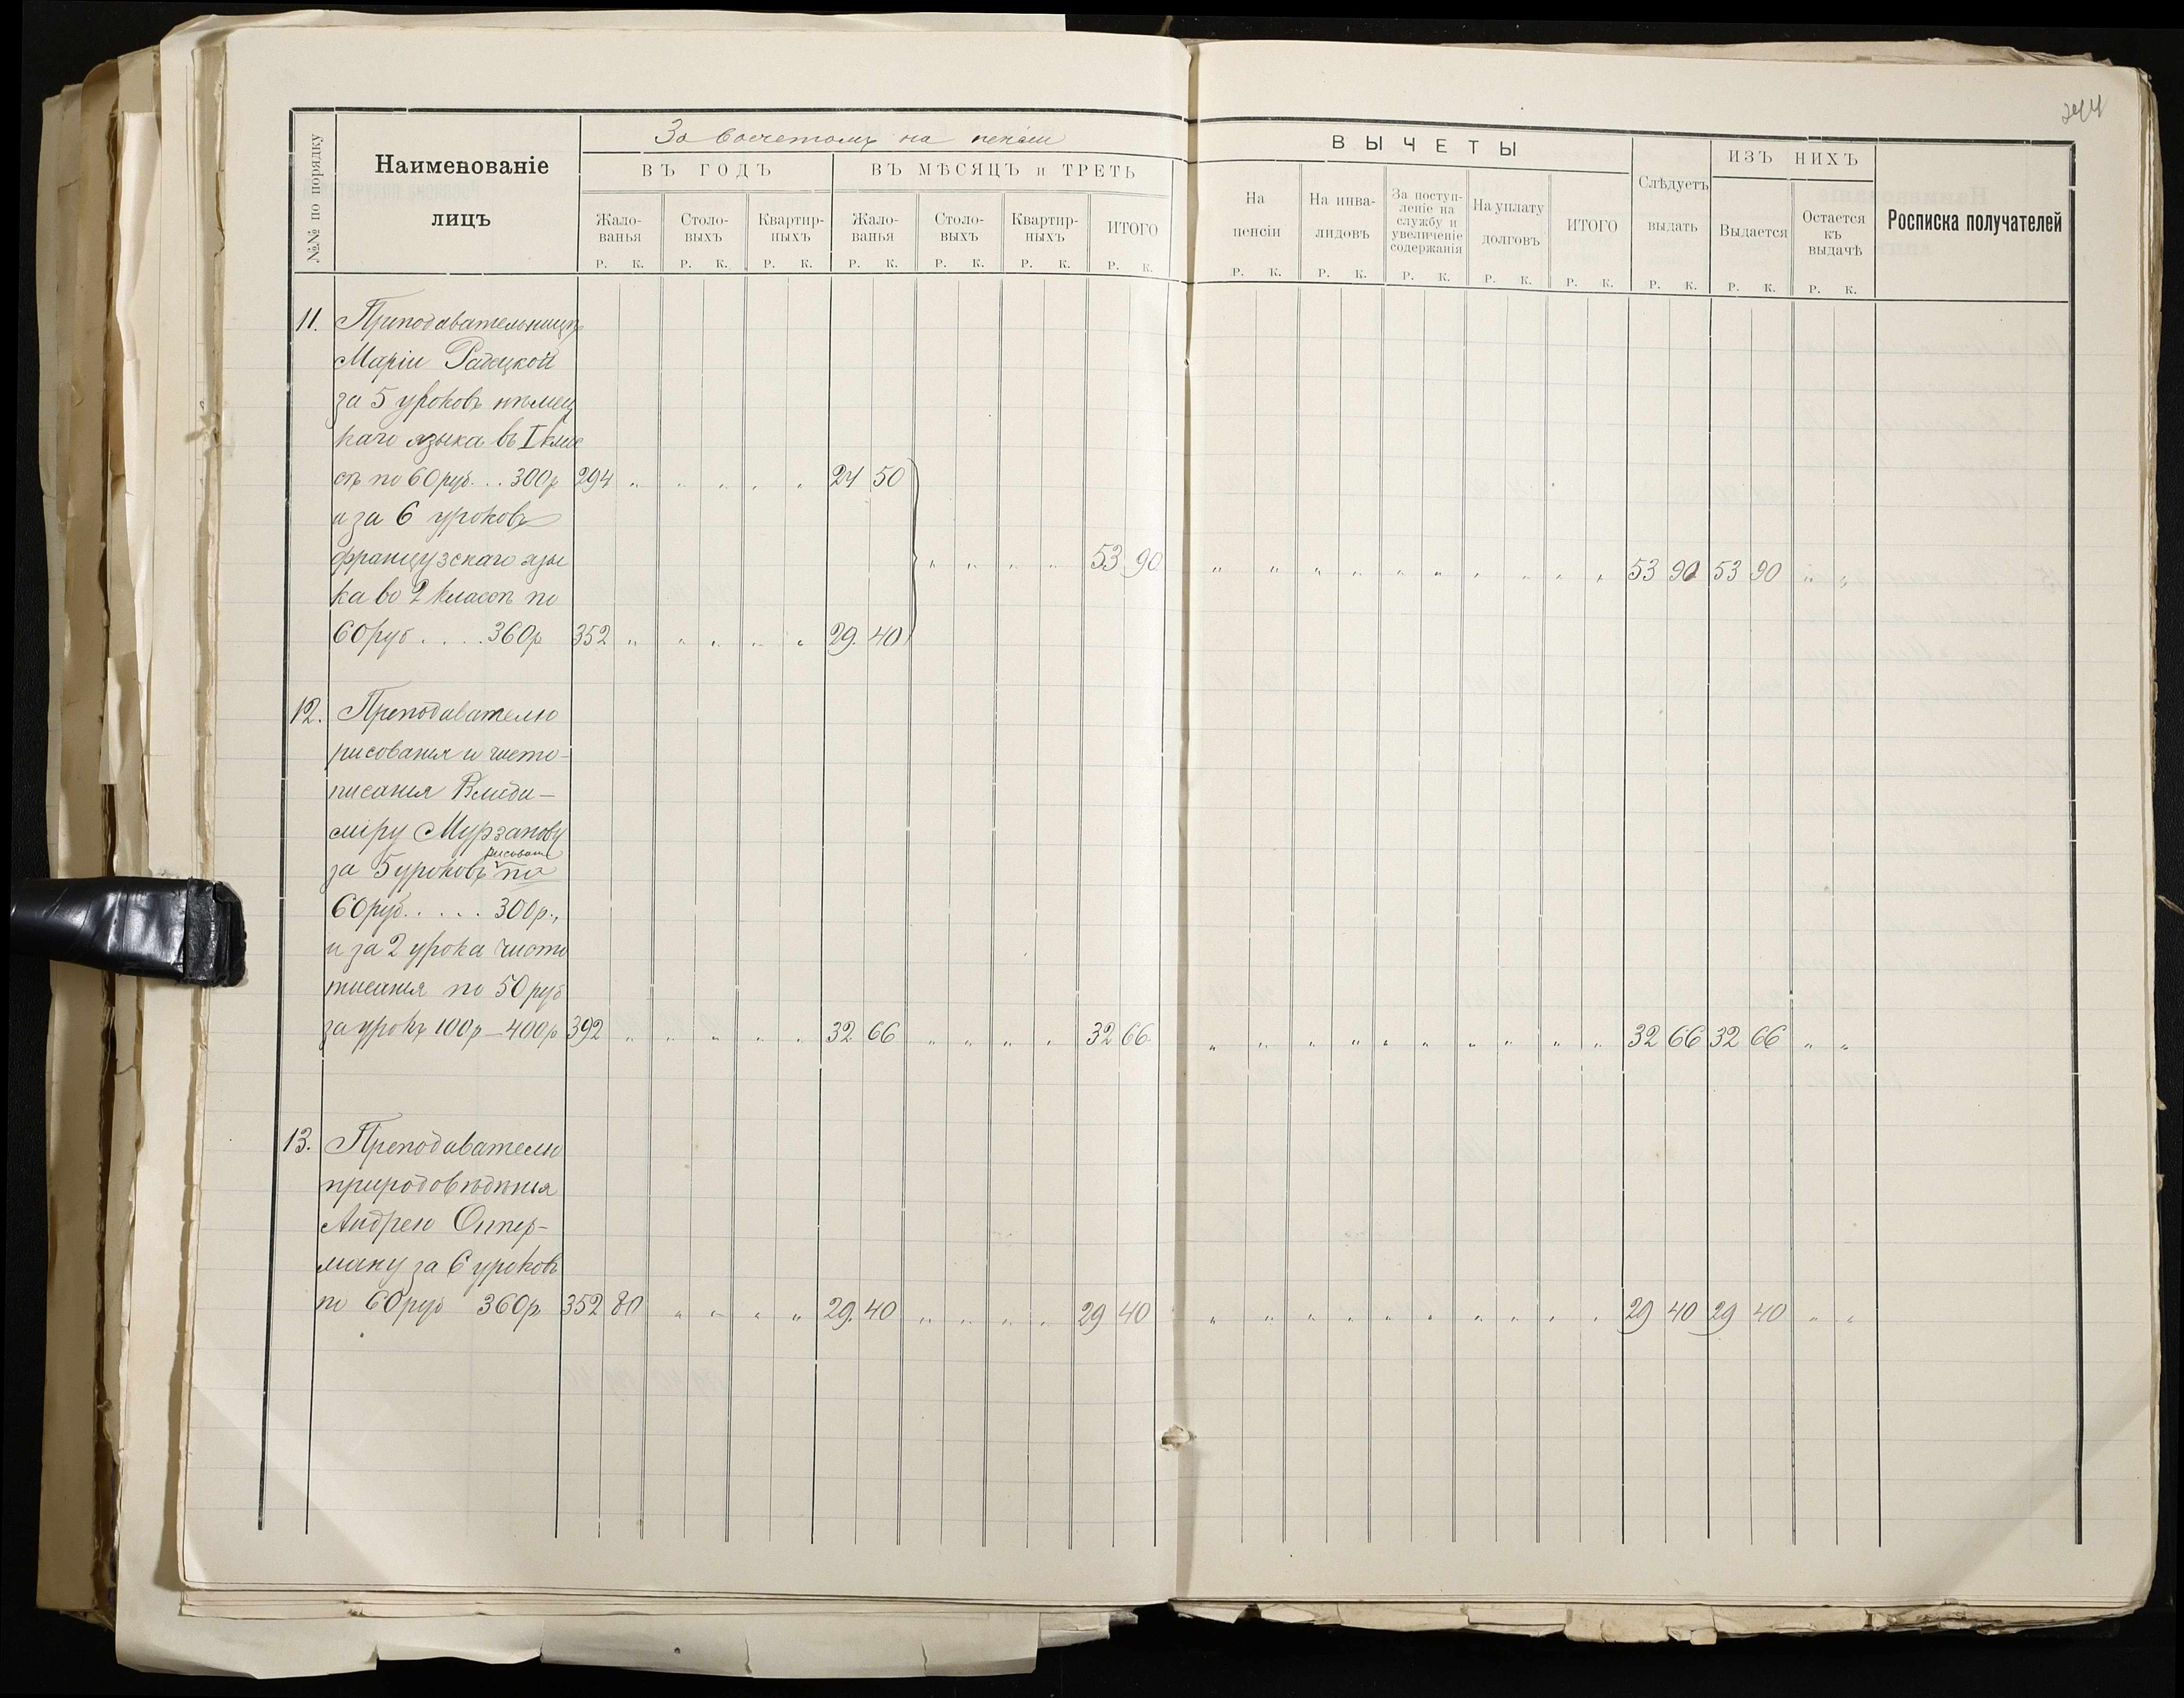 244
№№ по порядку
Наименованіе
лицъ
За вычетомъ на пенсіи
ВЪ ГОДЪ
ВЪ МѢСЯЦЪ и ТРЕТЬ
Жало-
ванья
Столо-
выхъ
Квартир-
ныхъ
Жало-
ванья
Столо-
выхъ
Квартир-
ныхъ
ИТОГО
Р. К. Р. К. Р. К. Р. К. Р. К. Р. К. Р. К.
ВЫЧЕТЫ
На
пенсіи
На инва-
лидовъ
За поступ-
леніе на
службу и
увеличеніе
содержанія
На уплату
долговъ
ИТОГО
Слѣдуетъ
выдать
ИЗЪ НИХЪ
Выдается
Остается
къ
выдачѣ
Росписка получателей
Р. К. Р. К. Р. К. Р. К. Р. К. Р. К. Р. К. Р. К.
11. Преподавательницѣ
Маріи Радецкой
за 5 уроковъ нѣмец
каго языка въ I клас
сѣ по 60 руб. . . 300 р 294 „ „ „ „ „ 24 50
и за 6 уроковъ
французскаго язы
„ „ „ „ 53 90 „ „ „ „ „ „ „ „ „ „ 53 90 53 90 „ „
ка во 2 классѣ по
60 руб . . . . 360 р 352 „ „ „ „ „ 29. 40
12. Преподавателю
рисованія и чисто-
писанія Влади-
міру Мурзанову
рисован
за 5 уроковъ по
60 руб. . . . . 300 р.,
и за 2 урока чисто
писанія по 50 руб
за урокъ 100 р - 400 р 392 „ „ „ „ „ 32 66 „ „ „ „ 32 66 „ „ „ „ „ „ „ „ „ „ 32 66 32 66 „ „
13. Преподавателю
природовѣдѣнія
Андрею Оппер-
ману за 6 уроковъ
по 60 руб 360 р 352 80 „ „ „ „ 29. 40 „ „ „ „ 29 40 „ „ „ „ „ „ „ „ „ „ 29 40 29 40 „ „